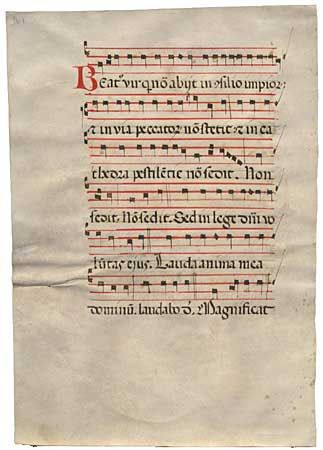 Beat⁹ vir q nō abijt in ɔsilio impior
⁊ in via peccator nō stetit ⁊ in ca
thedra pestilentie nō sedit. Non
sedit. Nō sedit. Sed in lege dn̄i vo
luntas ejus. Lauda anima mea
dominū. laudabo d̄. Magnificat